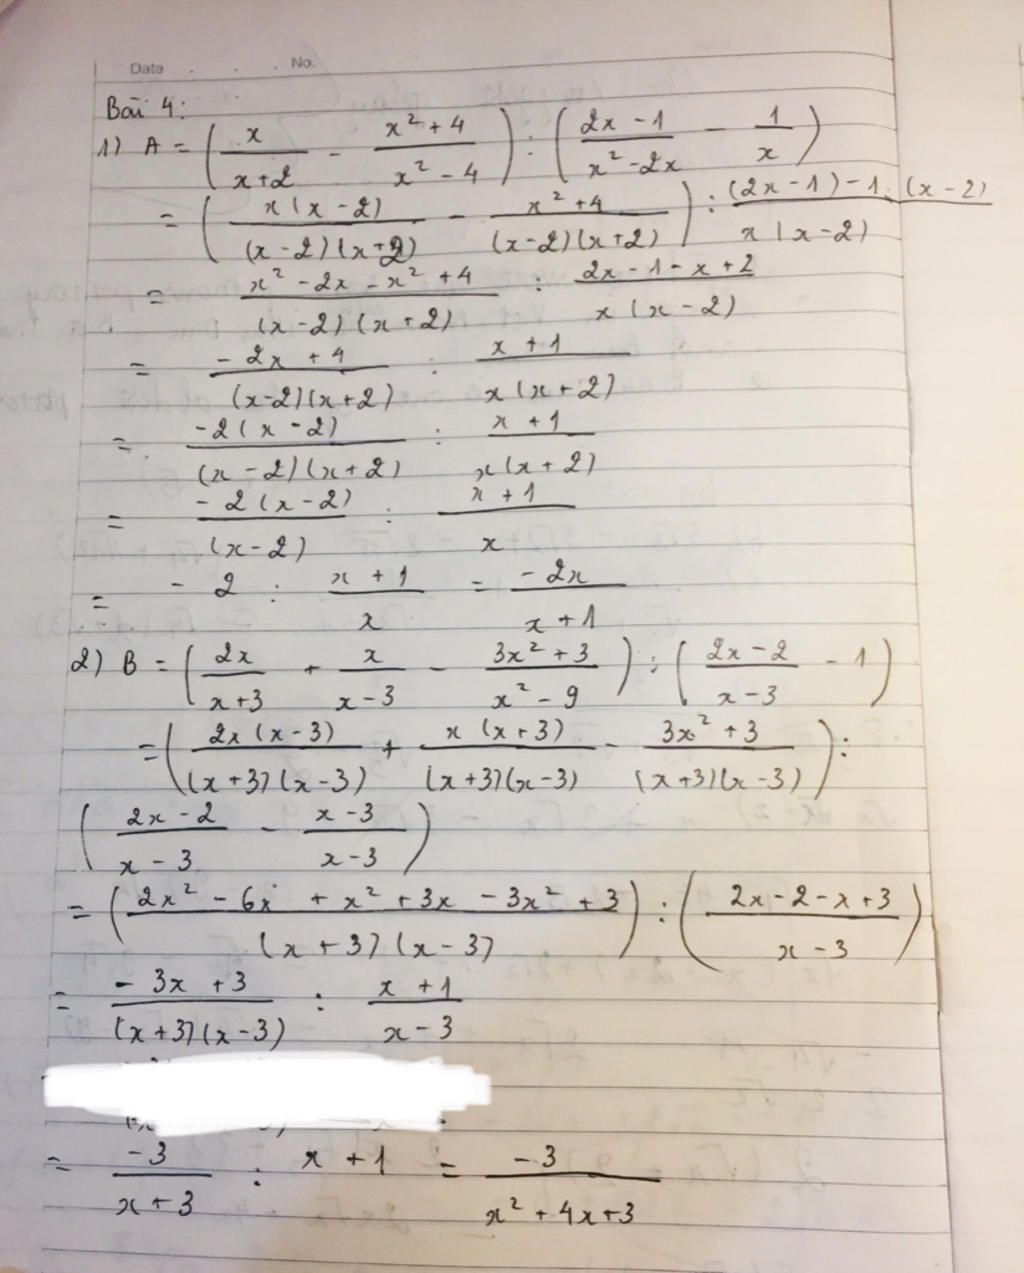 Date . . . No.
Bài 4:
1) A = ( x/(x+2) - (x² + 4)/(x² - 4) ) : ( (2x - 1)/(x² - 2x) - 1/x )
= ( x(x - 2)/((x - 2)(x + 2)) - (x² + 4)/((x - 2)(x + 2)) ) : ((2x - 1) - 1.(x - 2))/(x(x - 2))
= (x² - 2x - x² + 4)/((x - 2)(x + 2)) : (2x - 1 - x + 2)/(x(x - 2))
= (- 2x + 4)/((x - 2)(x + 2)) : (x + 1)/(x(x + 2))
= (-2(x - 2))/((x - 2)(x + 2)) : (x + 1)/(x(x + 2))
= (- 2(x - 2))/((x - 2)) : (x + 1)/x
= - 2 : (x + 1)/x = (- 2x)/(x + 1)
2) B = ( 2x/(x + 3) + x/(x - 3) - (3x² + 3)/(x² - 9) ) : ( (2x - 2)/(x - 3) - 1 )
= ( 2x(x - 3)/((x + 3)(x - 3)) + x(x + 3)/((x + 3)(x - 3)) - (3x² + 3)/((x + 3)(x - 3)) ) :
( (2x - 2)/(x - 3) - (x - 3)/(x - 3) )
= ( (2x² - 6x + x² + 3x - 3x² + 3)/((x + 3)(x - 3)) ) : ( (2x - 2 - x + 3)/(x - 3) )
= (- 3x + 3)/((x + 3)(x - 3)) : (x + 1)/(x - 3)
= (-3)/(x + 3) : x + 1 = (-3)/(x² + 4x + 3)